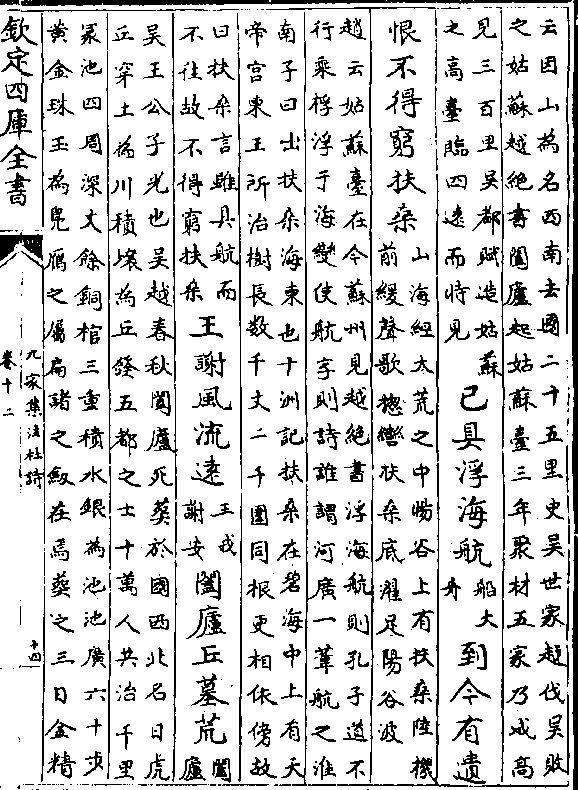 云因山為名西南去國二十五里史吳世家越伐吳敗
之姑蘇越絶書闔廬起姑蘇臺三年聚材五家乃成高
見三百里吳都賦造姑蘇
之高臺臨四逺而特見
已具浮海航
船大
舟
到今有遺
恨不得窮扶桑
山海經大荒之中暘谷上有扶桑陸機
前緩聲歌揔轡扶桑底濯足陽谷波
趙云姑蘇臺在今蘇州見越絶書浮海航則孔子道不
行乘桴浮于海變使航字則詩誰謂河廣一葦航之淮
南子曰出扶桑海東也十洲記扶桑在碧海中上有天
帝宫東王所治樹長數千丈二千圍同根更相依傍故
曰扶桑言雖具航而
不往故不得窮扶桑
王謝風流逺
王戎
謝安
闔廬丘墓荒
闔
廬
吳王公子光也吳越春秋闔廬死葬於國西北名曰虎
丘穿土為川積壤為丘發五都之士十萬人共治千里
冢池四周深丈餘銅棺三重積水銀為池池廣六十步
黄金珠玉為鳬鴈之屬扁諸之劍在焉葬之三日金精
欽定四庫全書
九家集注杜詩
卷十二
十四